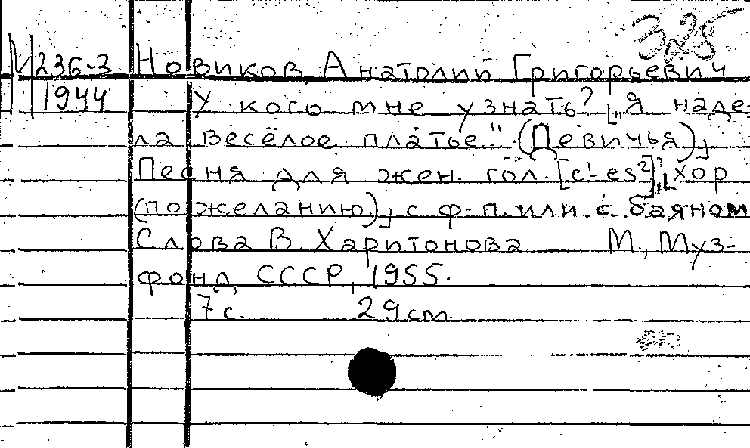 325
М 236-3
1944
Новиков, Анатолий Григорьевич
У кого мне узнать? [„Я наде-
ла весёлое платье." (Девичья)]
Песня для жен. гол. [c¹-es²], [хор
(по желанию)], с ф-п. или с баяном
Слова В. Харитонова М., Муз-
фонд СССР, 1955.
7 с. 29 cm